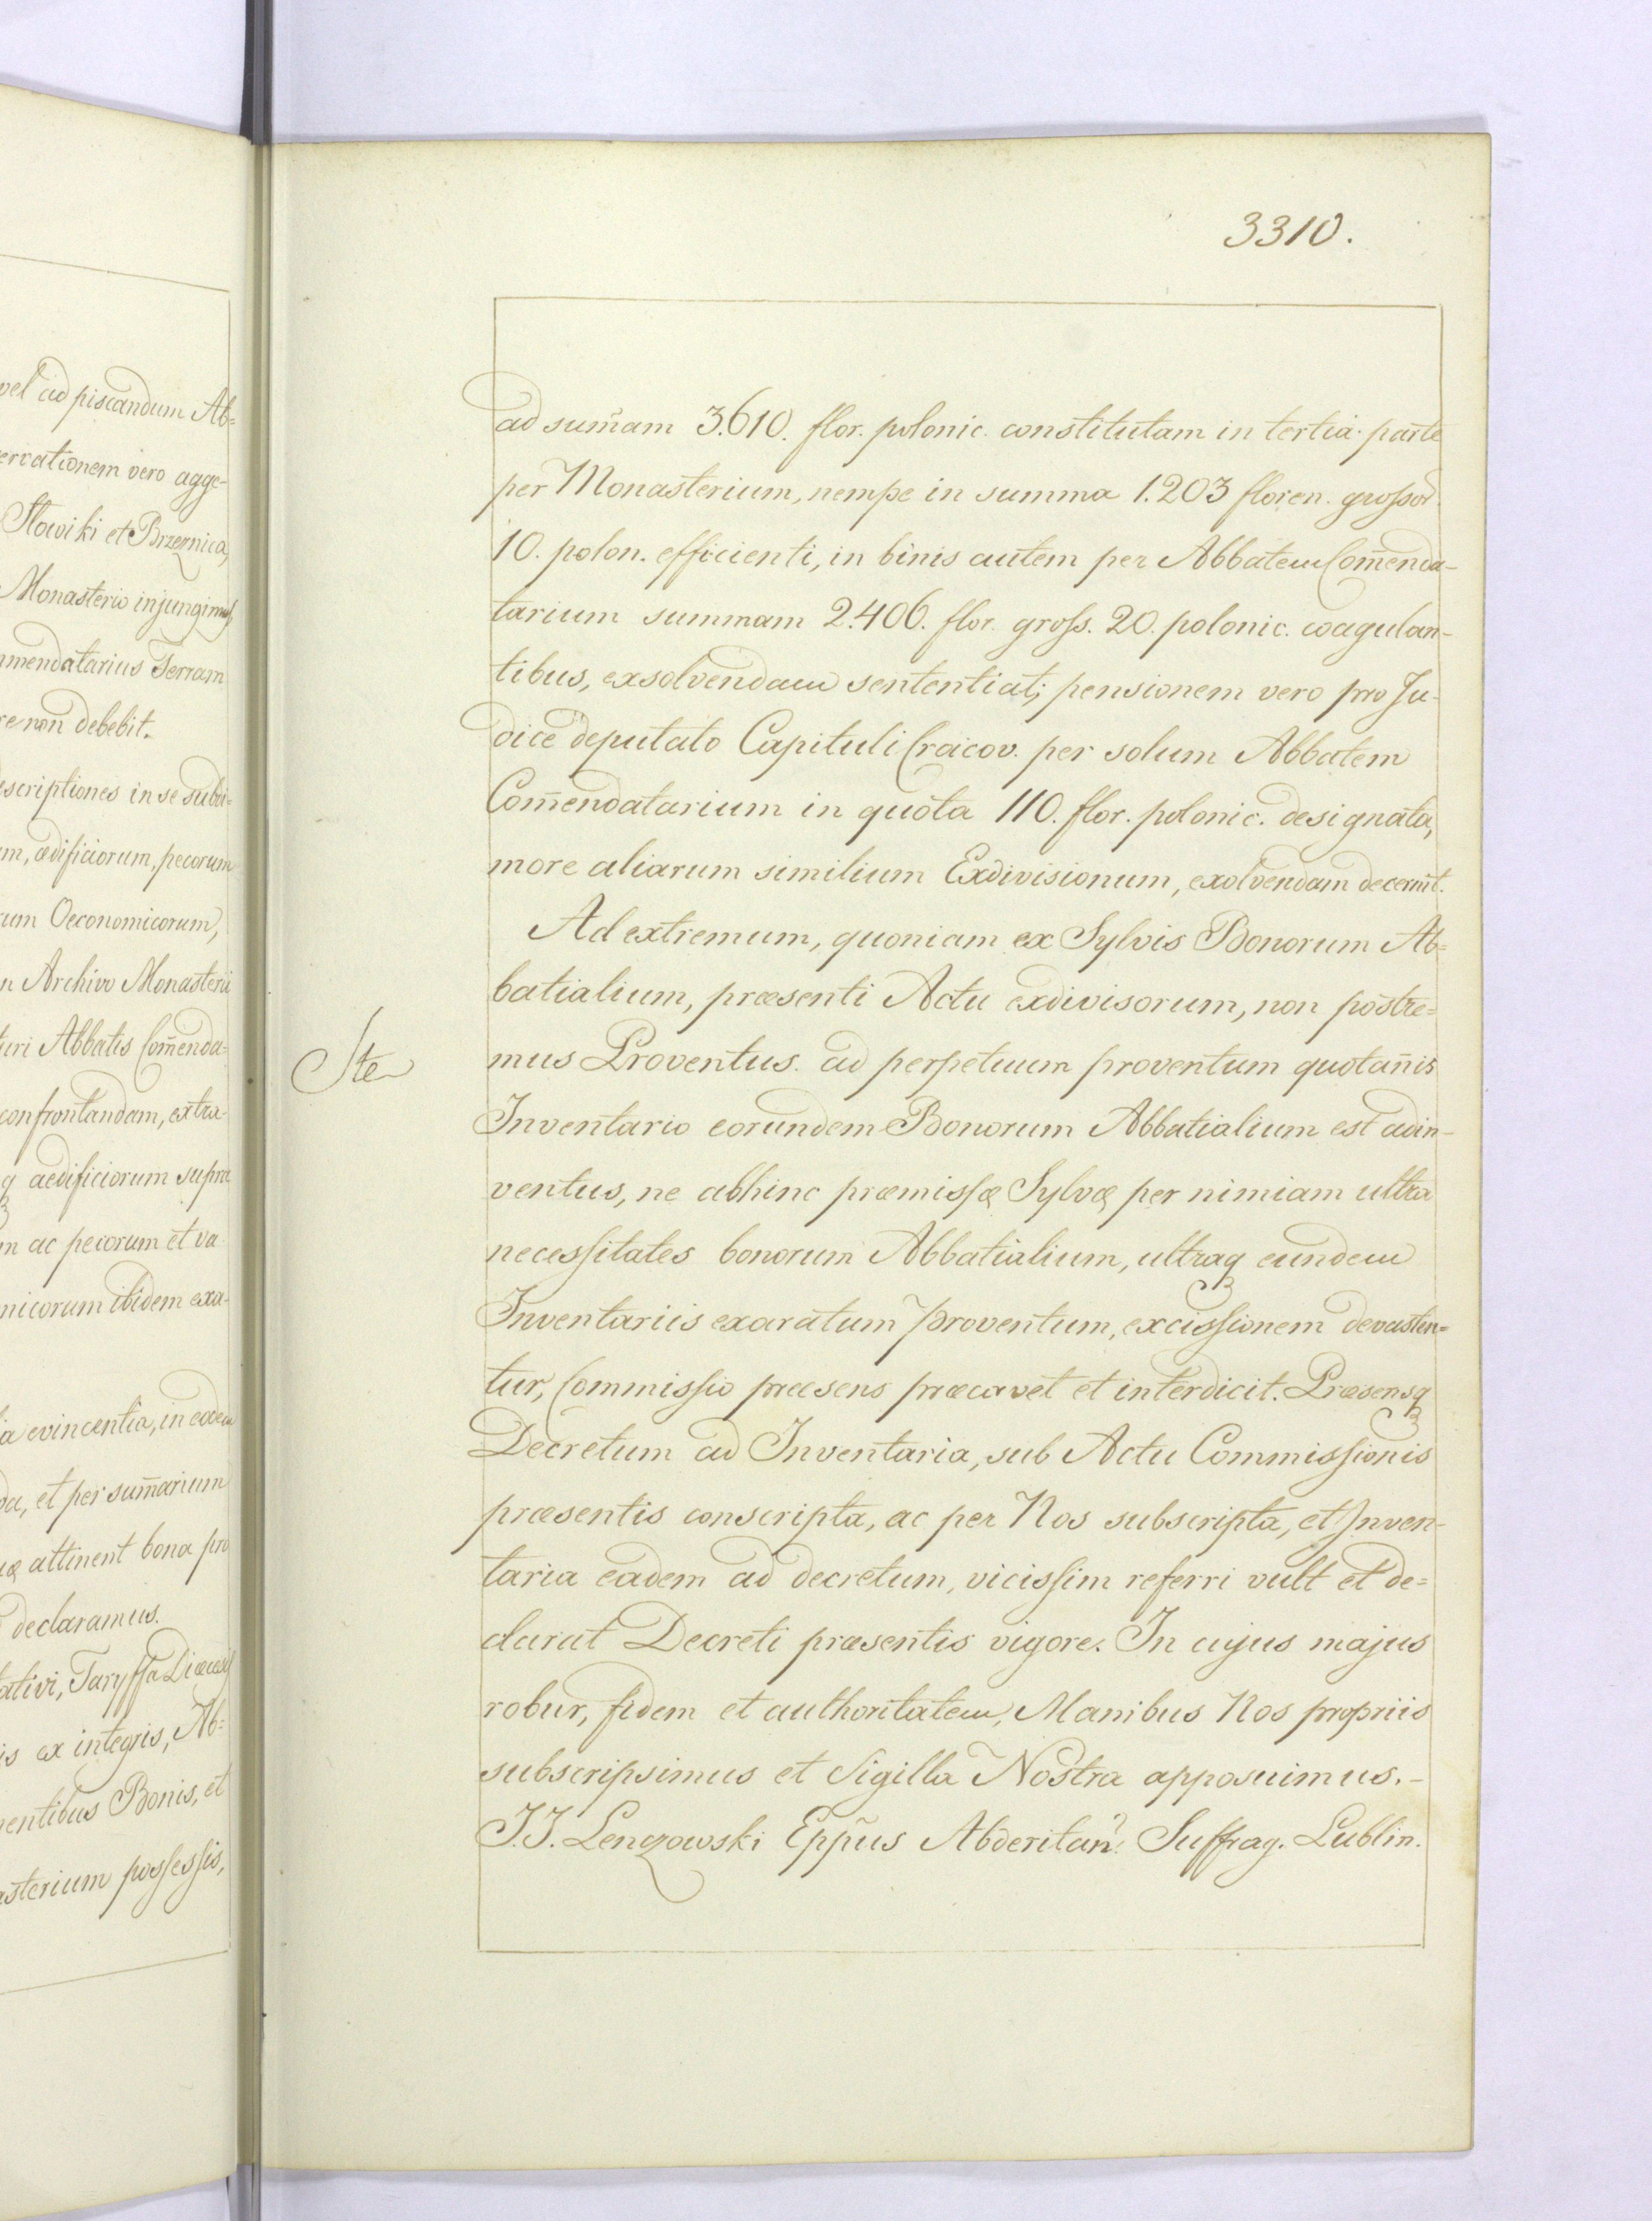 vel ad piscandum Ab=
ervationem vero agge-
Słowiki et Brzeznica,
Monasterio injungimus,
mmendatarius Terram
re non debebit.
escriptiones in se subdi=
m, ædificiorum, pecorum
rum Oeconomicorum,
n Archivo Monasterii
turi Abbatis Com̄enda=
confrontandam, extra-
q aedificiorum supra
m ac pecorum et va
micorum ibidem exa-
ia evincentia, in eadem
da, et per sum̄arium
uæ attinent bona pro
declaramus.
tativi, Taryffa
is ex integris, Ab=
nentibus Bonis, et
asterium possessis,
3310.
ad sum̄am 3.610. flor. polonic. constitutam in tertia parte
per Monasterium, nempe in summa 1.203 floren. grossor.
10. polon. efficienti, in binis autem per Abbatem Com̄enda-
tarium summam 2.406. flor. gross. 20. polonic. coagulan-
tibus, exsolvendam sententiat; pensionem vero pro Ju-
dice deputato Capituli Cracov. per solum Abbatem
Com̄endatarium in quota 110. flor. polonic. designata,
more aliarum similium Exdivisionum, exolvendam decernit.
Ad extremum, quoniam ex Sylvis Bonorum Ab=
batialium, præsenti Actu exdivisorum, non postre=
mus Proventus ad perpetuum proventum quotan̄is
Ste
Inventario eorundem Bonorum Abbatialium est adin-
ventus, ne abhinc præmissæ Sylvæ per nimiam ultra
necessitates bonorum Abbatialium, ultraq eundem
Inventariis exaratum proventum, excissionem devasten=
tur, Commissio præsens præcavet et interdicit. Præsensq
Decretum ad Inventaria, sub Actu Commissionis
præsentis conscripta, ac per Nos subscripta, et Inven-
taria eadem ad decretum, vicissim referri vult et de=
clarat Decreti præsentis vigore. In cujus majus
robur, fidem et authoritatem, Manibus Nos propriis
subscripsimus et Sigilla Nostra apposuimus.-
J.J. Lenczowski Epp̄us Abderitan̄. Suffrag. Lublin.